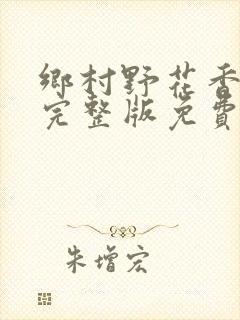 鄉村野花香
完整版免費
朱增宏